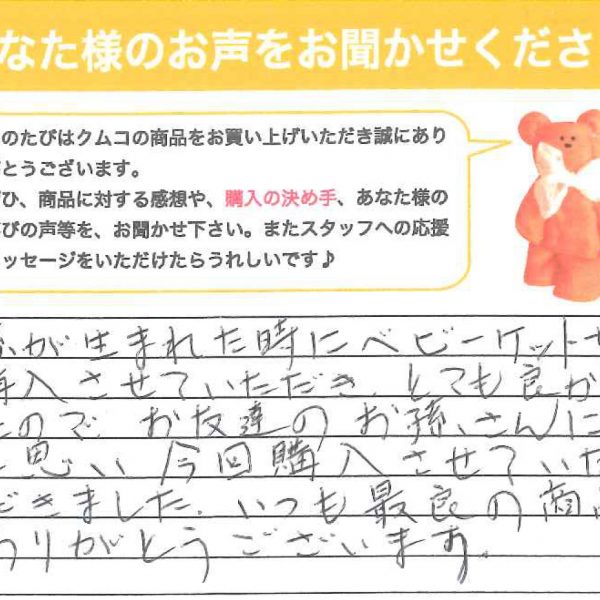 なた様のお声をお聞かせくださ
のたびはクムコの商品をお買い上げいただき誠にあり
とうございます。
ひ、商品に対する感想や、購入の決め手、あなた様の
びの声等を、お聞かせ下さい。またスタッフへの応援
ッセージをいただけたらうれしいです♪
が生まれた時にベビーケット
入させていただき、とても良か
たので、お友達のお孫さんに
と思い今回購入させていた
だきました。いつも最良の商
りがとうございます。